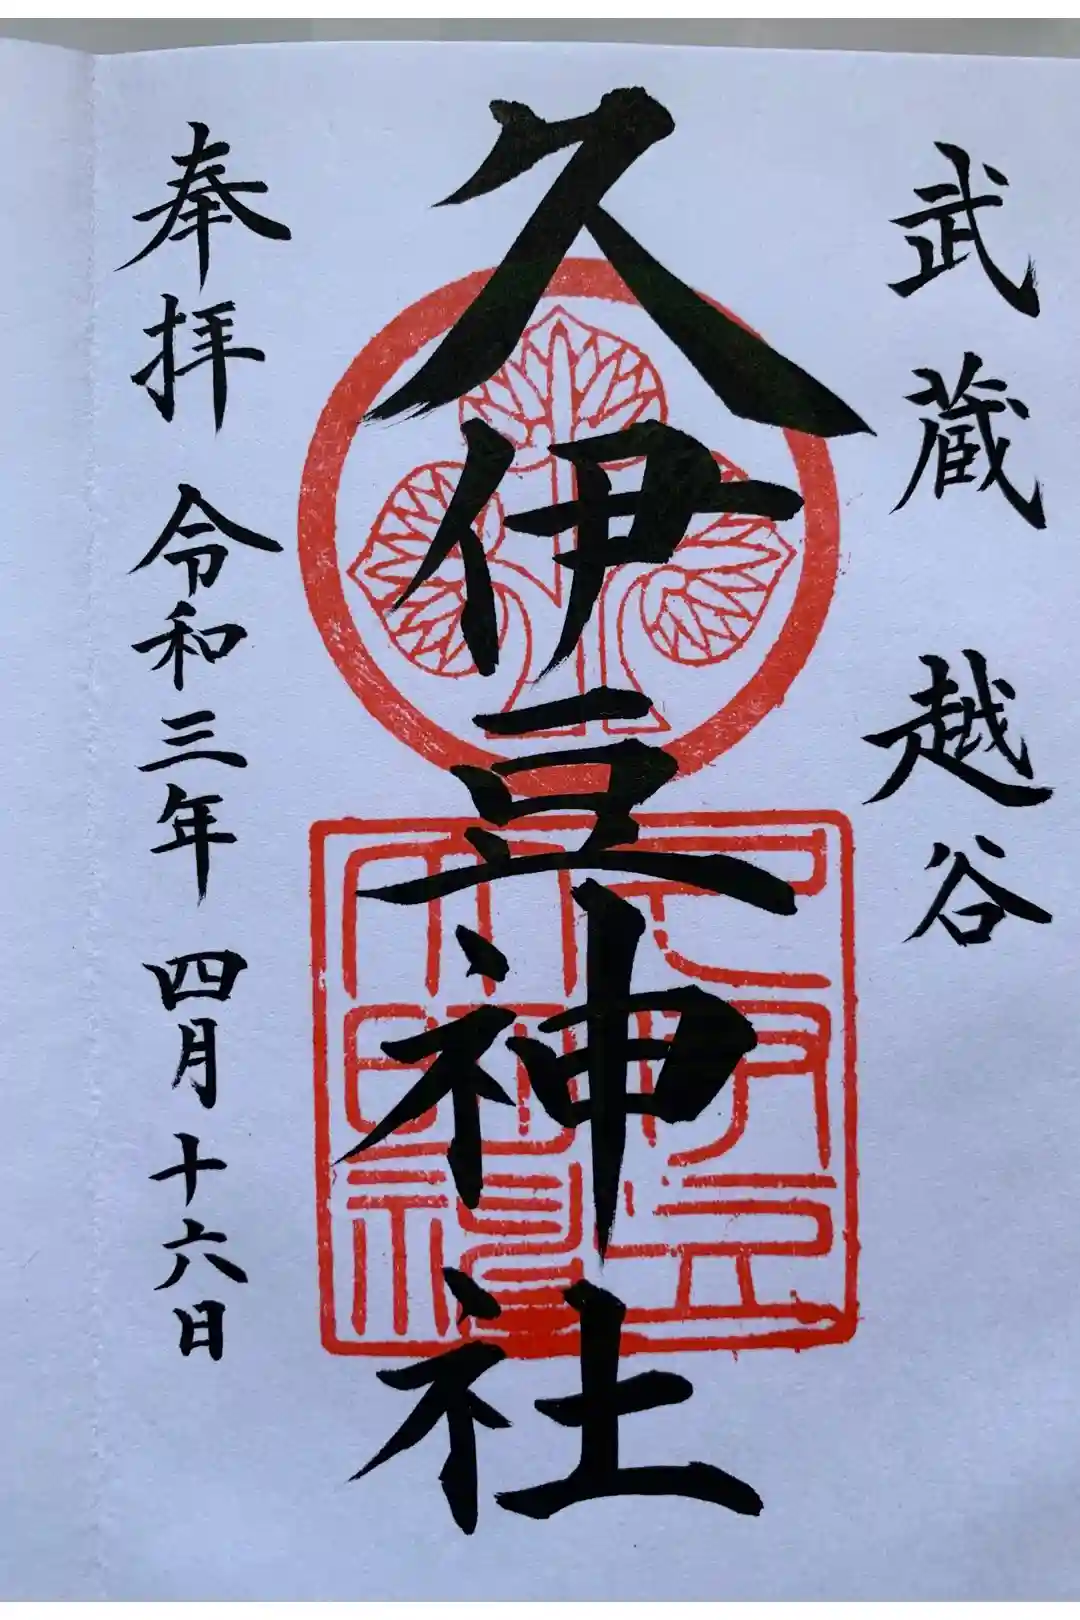 武蔵 越谷
久伊豆神社
奉拝 令和三年 四月十六日